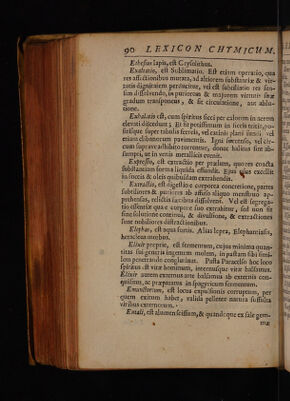 90 LEXICON CHYMICUM.
Ethesius lapis, est Crysolithus.
Exaltatio, est Sublimatio. Est etiam operatio, qua
res affectionibus mutata, ad altiorem substantiæ & vir-
tutis dignitatem perducitur, vel est substantiæ res sen-
sim dissolvendo, in puriorem & majorem virtutis suæ
gradum transponens, & fit circulatione, aut ablu-
tione.
Exhalatio est, cum spiritus sicci per calorem in aerem
elevati discedunt; Et fit potissimum in
fusisque super tabulis ferreis, vel catinis planis
etiam clibanorum pavimentis. Igni intensio, vel cir-
cum
sumpti, ut in venis metallicis evenit.
Expressio, est extractio per prælum, quores coacta
substantiam forma liquida effundit. Ejus usus excellit
in succis & oleis quibusdam extrahendis.
Extractio, est digestio e corporea concretione, partes
subtiliores & puriores ab affuso aliquo menstruo ap-
prehensas, relictis fæcibus dissolvens. Vel est segrega-
tio essentiæ quæ e corpore suo extrahitur, sed non fit
sine solutione continui, & divulsione, & extractiones
sunt nobiliores distractionibus.
Elephas, est aqua fortis. Alias lepra, Elephantiasis,
heracleus morbus.
Elixir proprie, est fermentum, cujus minima quan-
titas sui generis ingentem molem, in pastam sibi simi-
lem penetrando conglutinat. Pasta Paracelso hoc loco
spiritus est vitæ hominum, internusque vitæ balsamus.
Elixir autem externus arte balsamus ab externis con-
quisitus, ac præparatus in spagyricum fermentum.
Emunctorium, est locus expulsionis corruptum, per
quem exitum habet, valida pellente natura suffusa
viribus externorum.
Entali, est alumen scissum, & quandoque ex sale gem-
mæ